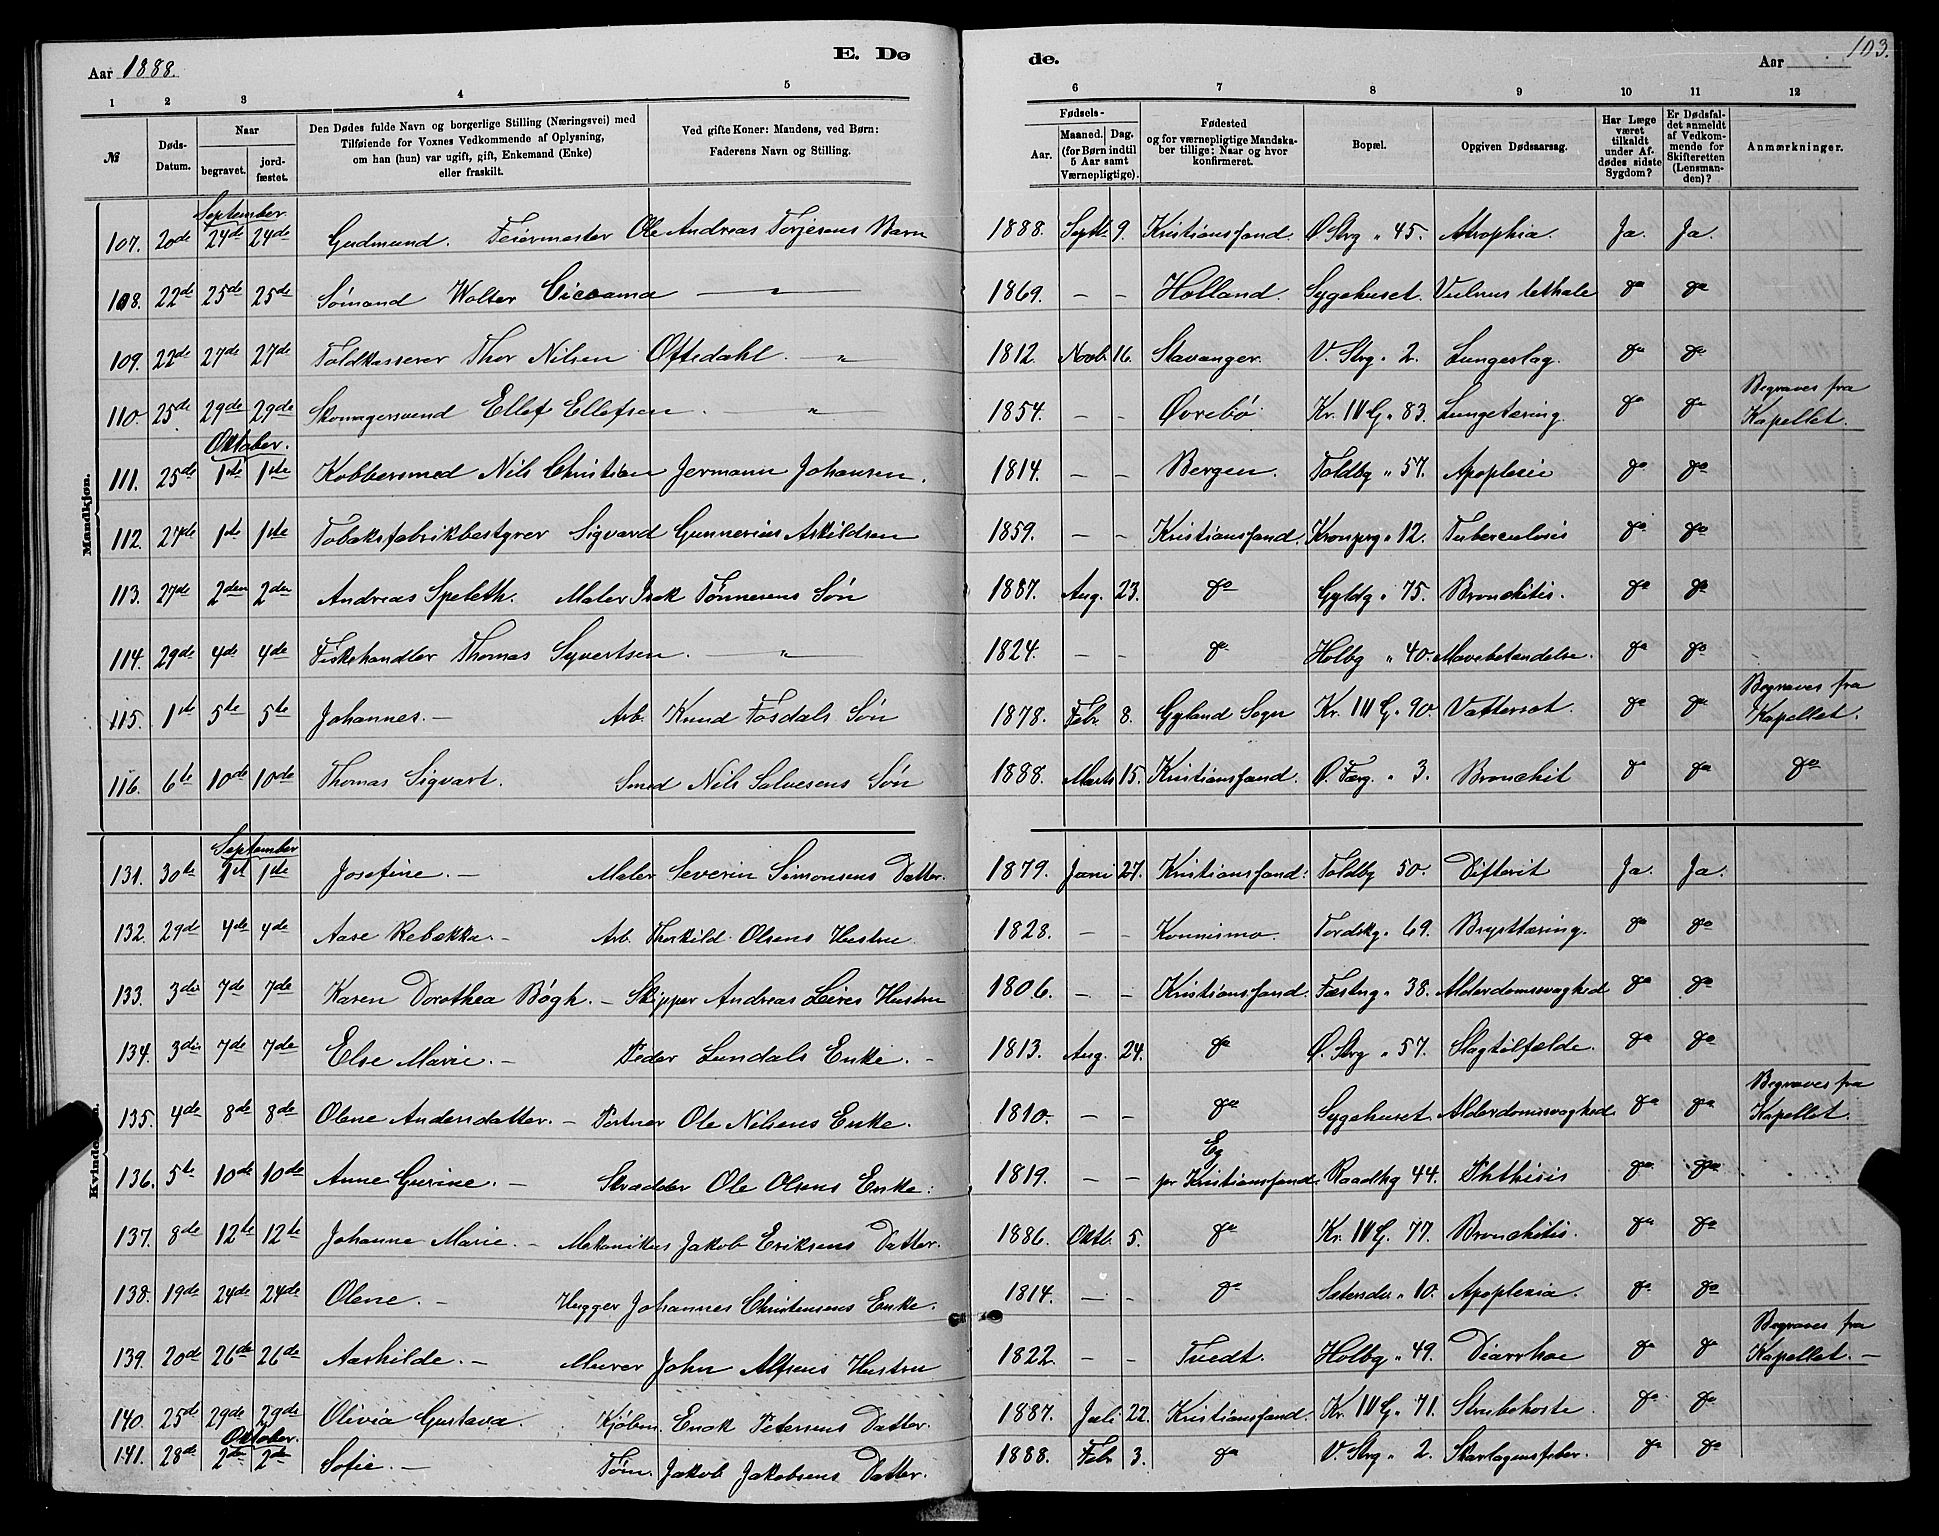 Aar 1888.
E. Dø
de.
Aar
103.
1 2 3 4 5 6 7 8 9 10 11 12
№
Døds-Datum.
Naar
begravet.
jordfæstet.
Den Dødes fulde Navn og borgerlige Stilling (Næringsvei) med
Tilføiende for Voxnes Vedkommende af Oplysning,
om han (hun) var ugift, gift, Enkemand (Enke)
eller fraskilt.
Ved gifte Koner: Mandens, ved Børn:
Faderens Navn og Stilling.
Fødsels-
Aar.
Maaned. Dag.
(for Børn indtil
5 Aar samt
Værnepligtige).
Fødested
og for værnepligtige Mandska-
ber tillige: Naar og hvor
konfirmeret.
Bopæl.
Opgiven Dødsaarsag.
Har Læge
været
tilkaldt
under Af-
dødes sidste
Sygdom?
Er Dødsfal-
det anmeldt
af Vedkom-
mende for
Skifteretten
(Lensman-
den)?
Anmærkninger.
Mandkjøn.
September
107. 20de 24de 24de Gudmund. Feiermester Ole Andreas Torjesens Barn 1888. Septr. 9. Kristianssand. Ø Strg „ 45. Atrophia. Ja. Ja.
108. 22de 25de 25de Sømand Wolter — „ — 1869. – – Holland. Sygehuset. Vulnus lethale do do
109. 22de 27de 27de Toldkasserer Thor Nilsen Oftedahl. — „ 1812. Novb. 16. Stavanger. V. Strg „ 2. Lungeslag. do do
110. 25de 29de 29de Skomagersvend Ellef Ellefsen. — „ 1854. – – Øvrebø. Kr. IV G. „ 83. Lungetæring. do do Begraves fra Kapellet.
Oktober.
111. 25de 1ste 1ste Kobbersmed Nils Christian Jermann Johansen. 1814. – – Bergen. Toldbg „ 57. Apoplexie do do
112. 27de 1ste 1ste Tobaksfabrikbestyrer Sigvard Gunnerius Askildsen 1859. – – Kristianssand. Kronprg „ 12. Tuberculosis do do
113. 27de 2den 2den Andreas Speleth. Maler Isak Tønnesens Søn 1887. Aug. 23. do Gyldg „ 75. Bronchitis. do do
114. 29de 4de 4de Fiskehandler Thomas Syvertsen. — „ 1824. – – do Holbg „ 40. Mavebetændelse. do do
115. 1ste 5te 5te Johannes. – Arb. Knud Fosdals Søn 1878. Febr. 8. Gyland Sogn Kr. IV G. „ 90. Vattersot. do do Begraves fra Kapellet.
116. 6te 10de 10de Thomas Sigvart. Smed Nils Salvesens Søn 1888. Marts 15. Kristianssand. Ø. „ 3. Bronchit do do do
Kvindekjøn.
September
131. 30te 1st 1ste Josefine. – Maler Severin Simonsens Datter. 1879. Juni 27. Kristianssand. Toldbg 50. Difterit Ja. Ja.
132. 29de 4de 4de Aase Rebekka. – Arb. Thorkild Olsens Hustru 1828. – – Konnismo. Tordskg „ 69. Brysttæring. do do
133. 3die 7de 7de Karen Dorothea Bøgh. – Skipper Andreas Leires Hustru 1806. – – Kristianssand. Fæstng „ 38. Alderdomssvaghed do do
134. 3die 7de 7de Else Marie. – Peder Lundals Enke. – 1813. Aug. 24. do Ø. Strg „ 57. Slagtilfælde. do do
135. 4de 8de 8de Olene Andersdatter. – Portner Ole Nilsens Enke. 1810. – – do Sygehuset. Alderdomssvaghed. do do Begraves fra Kapellet.
136. 5te 10de 10de Anne Gurine. – Skrædder Ole Olsens Enke. 1819. – – Eg pr Kristianssand. Raadhg 44. Phthisis do do
137. 8de 12te 12te Johanne Marie. – Mekanikus Jakob Eriksens Datter. 1886. Oktb. 5. do Kr. IV G. 77. Bronchitis. do do
138. 19de 24de 24de Olene. – Hugger Johannes Christensens Enke. 1814. – – do „ 10. Apoplexia. do do
139. 20de 26de 26de Aashilde. – Murer John Alfsens Hustru 1822. – – Tvedt. Holbg „ 49. Diarrhoe do do Begraves fra Kapellet. –
140. 25de 29de 29de Olivia Gustava. Kjøbm. Enok Petersens Datter. 1887. Juli 22. Kristianssand. Kr. IV G. „ 71. Strubehoste. do do
Oktober.
141. 28de 2den 2den Sofie. – Tøm. Jakob Jakobsens Datter. 1888. Febr. 3. do V. Strg „ 2. Skarlagensfeber. do do